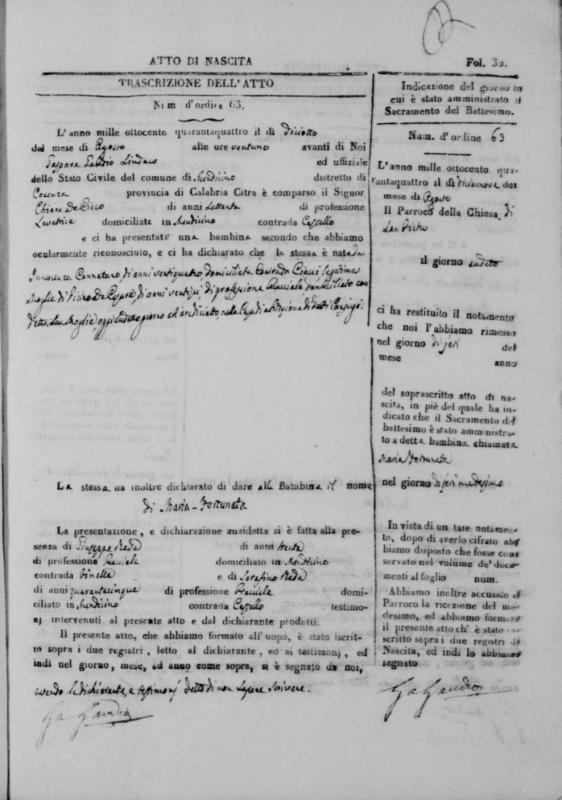 Fol. 32.
ATTO DI NASCITA
TRASCRIZIONE DELL'ATTO
Num d'ordine 63.
L'anno mille ottocento quarantaquattro il dì diciotto
del mese di Agosto alle ore ventuno avanti di Noi
Sindaco ed uffiziale
dello Stato Civile del comune di Mendicino distretto di
Cosenza provincia di Calabria Citra è comparso il Signor
Chiara De Cicco di anni settanta di professione
Levatrice domiciliata in Mendicino contrada Castello
e ci ha presentato una bambina secondo che abbiamo
ocularmente riconosciuto, e ci ha dichiarato che la stessa è nata da
Innocenza Cannataro di anni ventiquattro domiciliata legittima
moglie di Pietro De di anni di professione domiciliato con
detta sua moglie, oggi giorno nella Casa di abitazione di detti Coniugi.
La stessa ha inoltre dichiarato di dare alla Bambina il nome
di Maria-Fortunata
La presentazione, e dichiarazione anzidetta si è fatta alla pre-
senza di Giuseppe Reda di anni trenta
di professione domiciliato in Mendicino
contrada e di Serafino Reda
di anni quarantacinque di professione domi-
ciliato in Mendicino contrada Castello testimo-
nj intervenuti al presente atto e dal dichiarante prodotti.
Il presente atto, che abbiamo formato all'uopo, è stato iscrit-
to sopra i due registri, letto al dichiarante, ed ai testimonj, ed
indi nel giorno, mese, ed anno come sopra, si è segnato da noi,
avendo la dichiarante, e testimonj detto di non sapere scrivere.
Indicazione del giorno in
cui è stato amministrato il
Sacramento del Battesimo.
Num. d'ordine 63
L'anno mille ottocento qua-
rantaquattro il dì diciannove del
mese di Agosto
Il Parroco della Chiesa di
San Pietro
il giorno sudetto
ci ha restituito il notamento
che noi l'abbiamo rimesso
nel giorno di jeri del
mese anno
del soprascritto atto di na-
scita, in piè del quale ha in-
dicato che il Sacramento del
battesimo è stato amministra-
to a detta bambina chiamata
Maria Fortunata
nel giorno di jeri medesimo
In vista di un tale notamen-
to, dopo di averlo cifrato ab-
biamo disposto che fosse con-
servato nel volume de' docu-
menti al foglio num.
Abbiamo inoltre accusato al
Parroco la ricezione del me-
desimo, ed abbiamo formato
il presente atto ch' è stato i-
scritto sopra i due registri di
Nascita, ed indi lo abbiamo
segnato